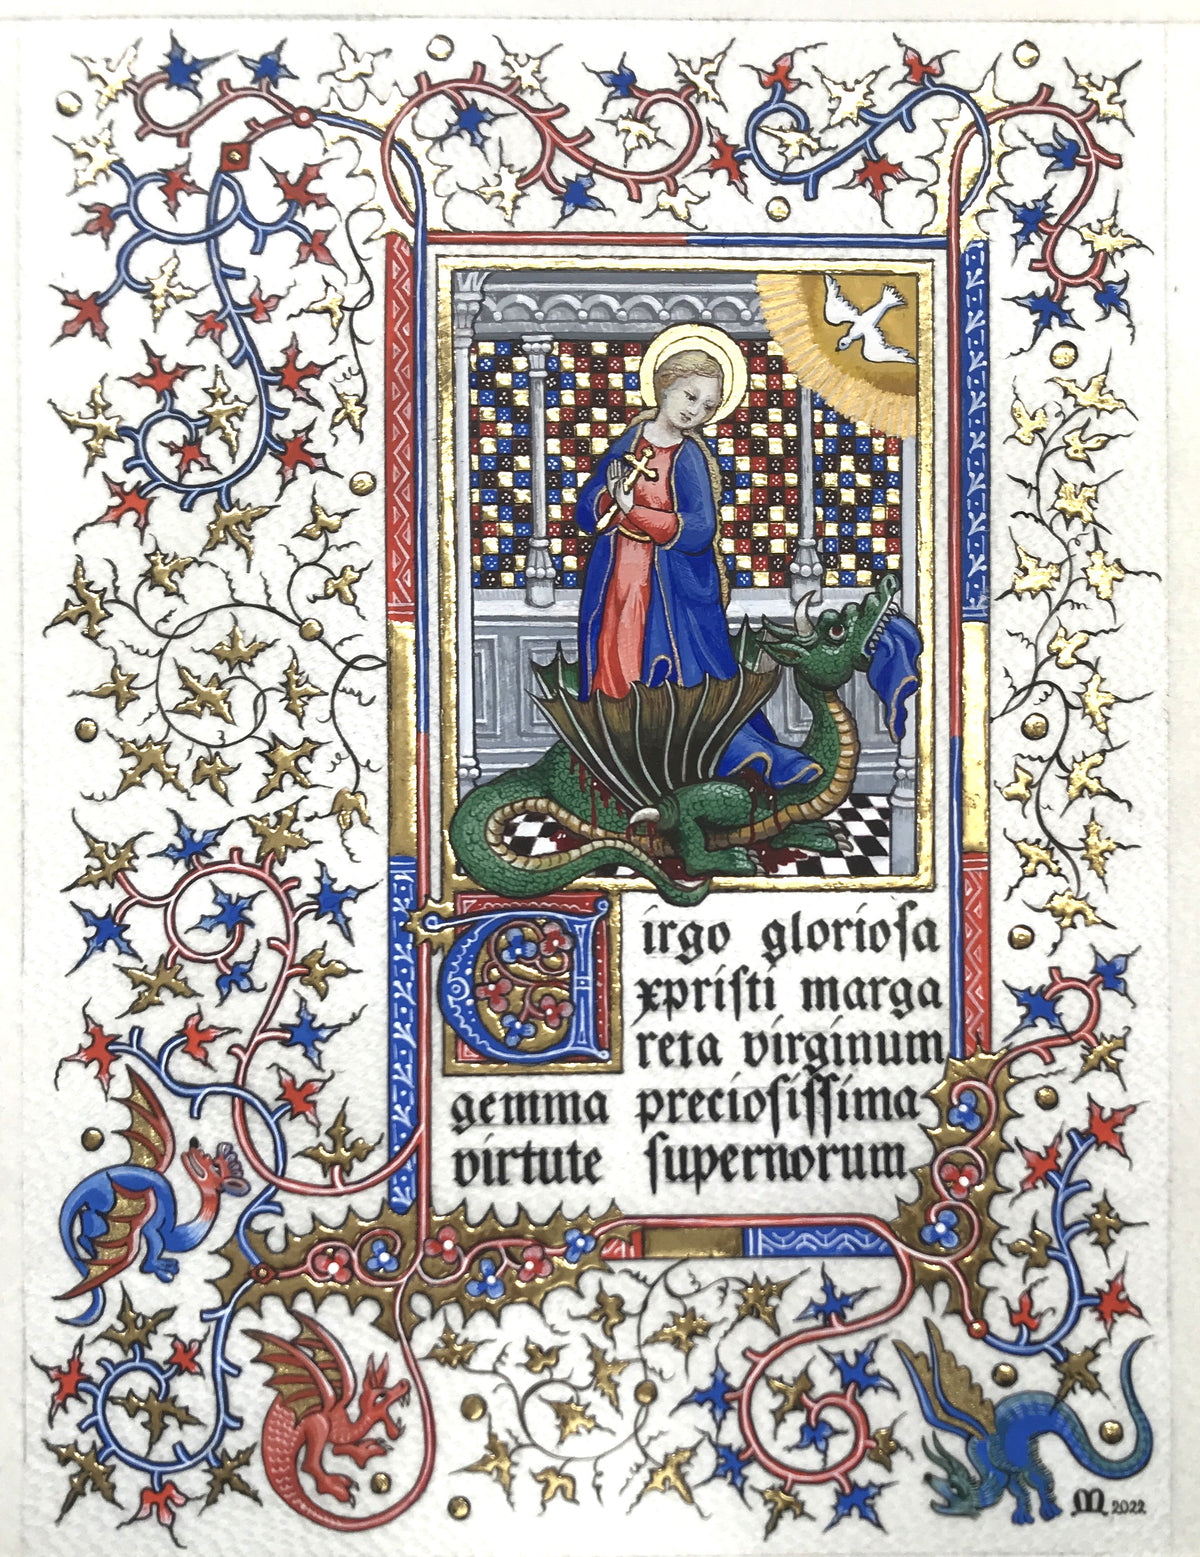 Virgo glorioſa
xpriſti marga
reta virginum
gemma precioſiſſima
virtute ſupernorum
M 2022